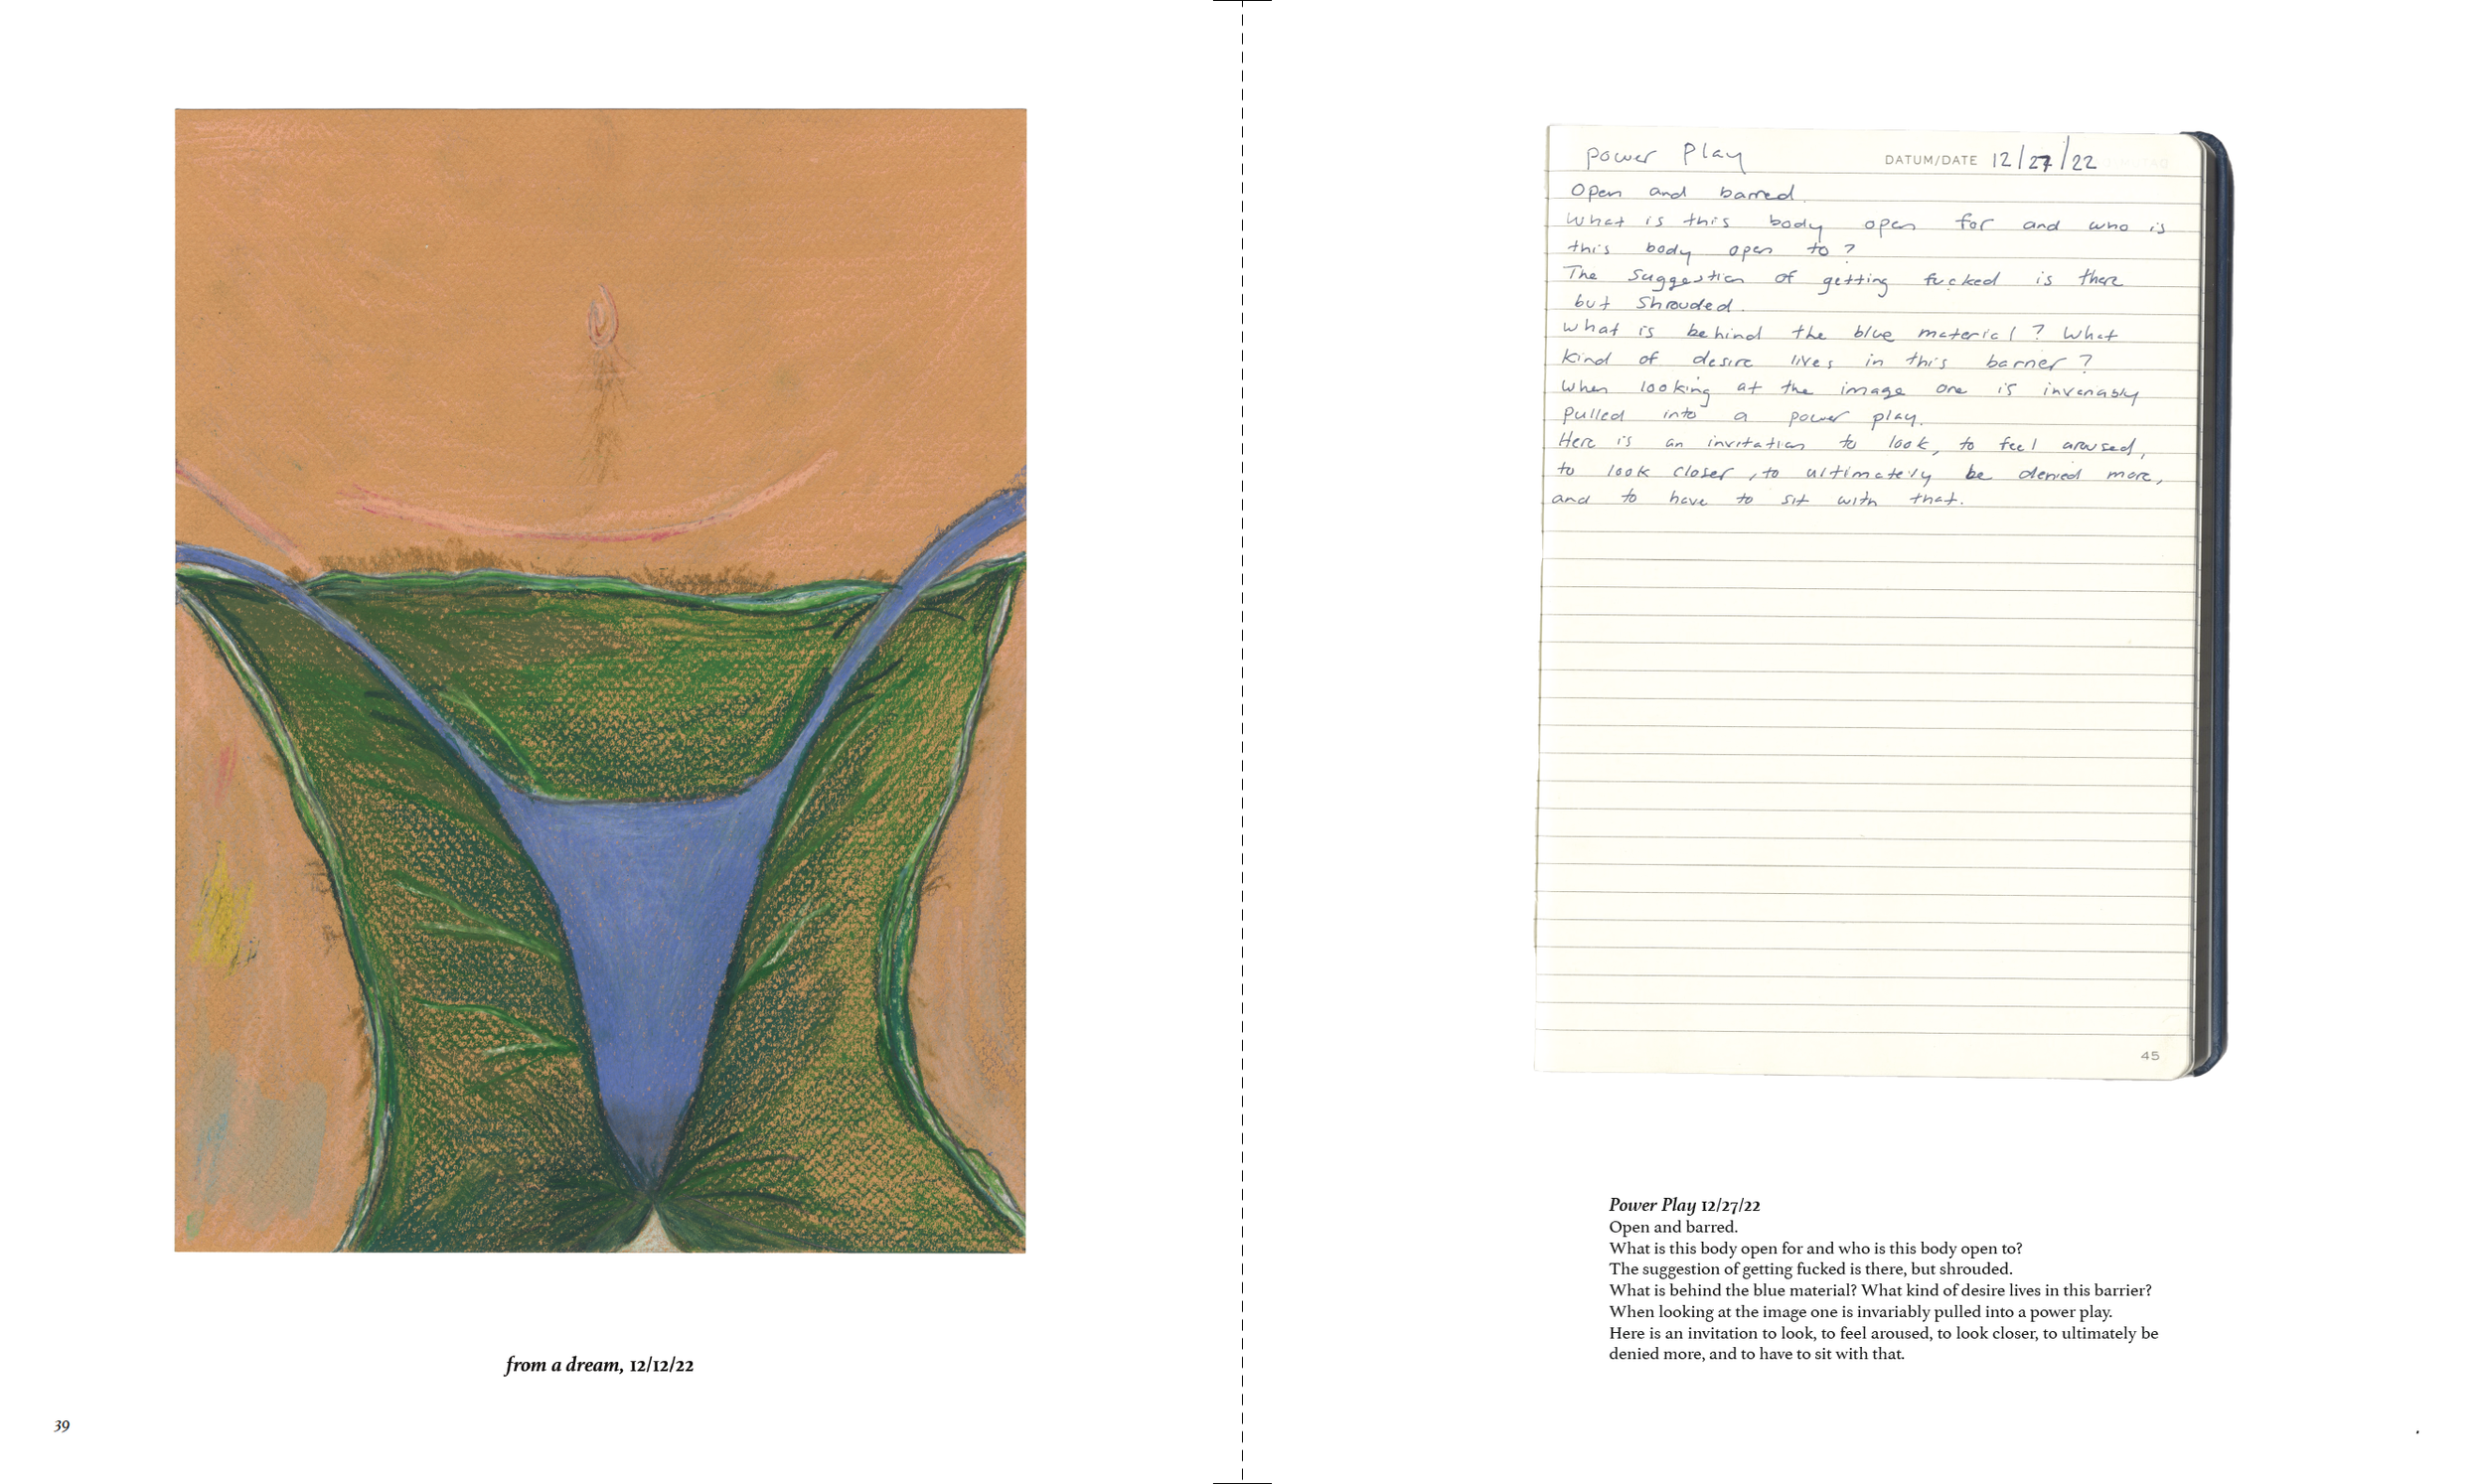 from a dream, 12/12/22
39
power Play
DATUM/DATE 12/27/22
Open and barred.
What is this body open for and who is
this body open to?
The suggestion of getting fucked is there
but shrouded.
What is behind the blue material? What
kind of desire lives in this barrier?
When looking at the image one is invariably
pulled into a power play.
Here is an invitation to look, to feel aroused,
to look closer, to ultimately be denied more,
and to have to sit with that.
45
Power Play 12/27/22
Open and barred.
What is this body open for and who is this body open to?
The suggestion of getting fucked is there, but shrouded.
What is behind the blue material? What kind of desire lives in this barrier?
When looking at the image one is invariably pulled into a power play.
Here is an invitation to look, to feel aroused, to look closer, to ultimately be
denied more, and to have to sit with that.